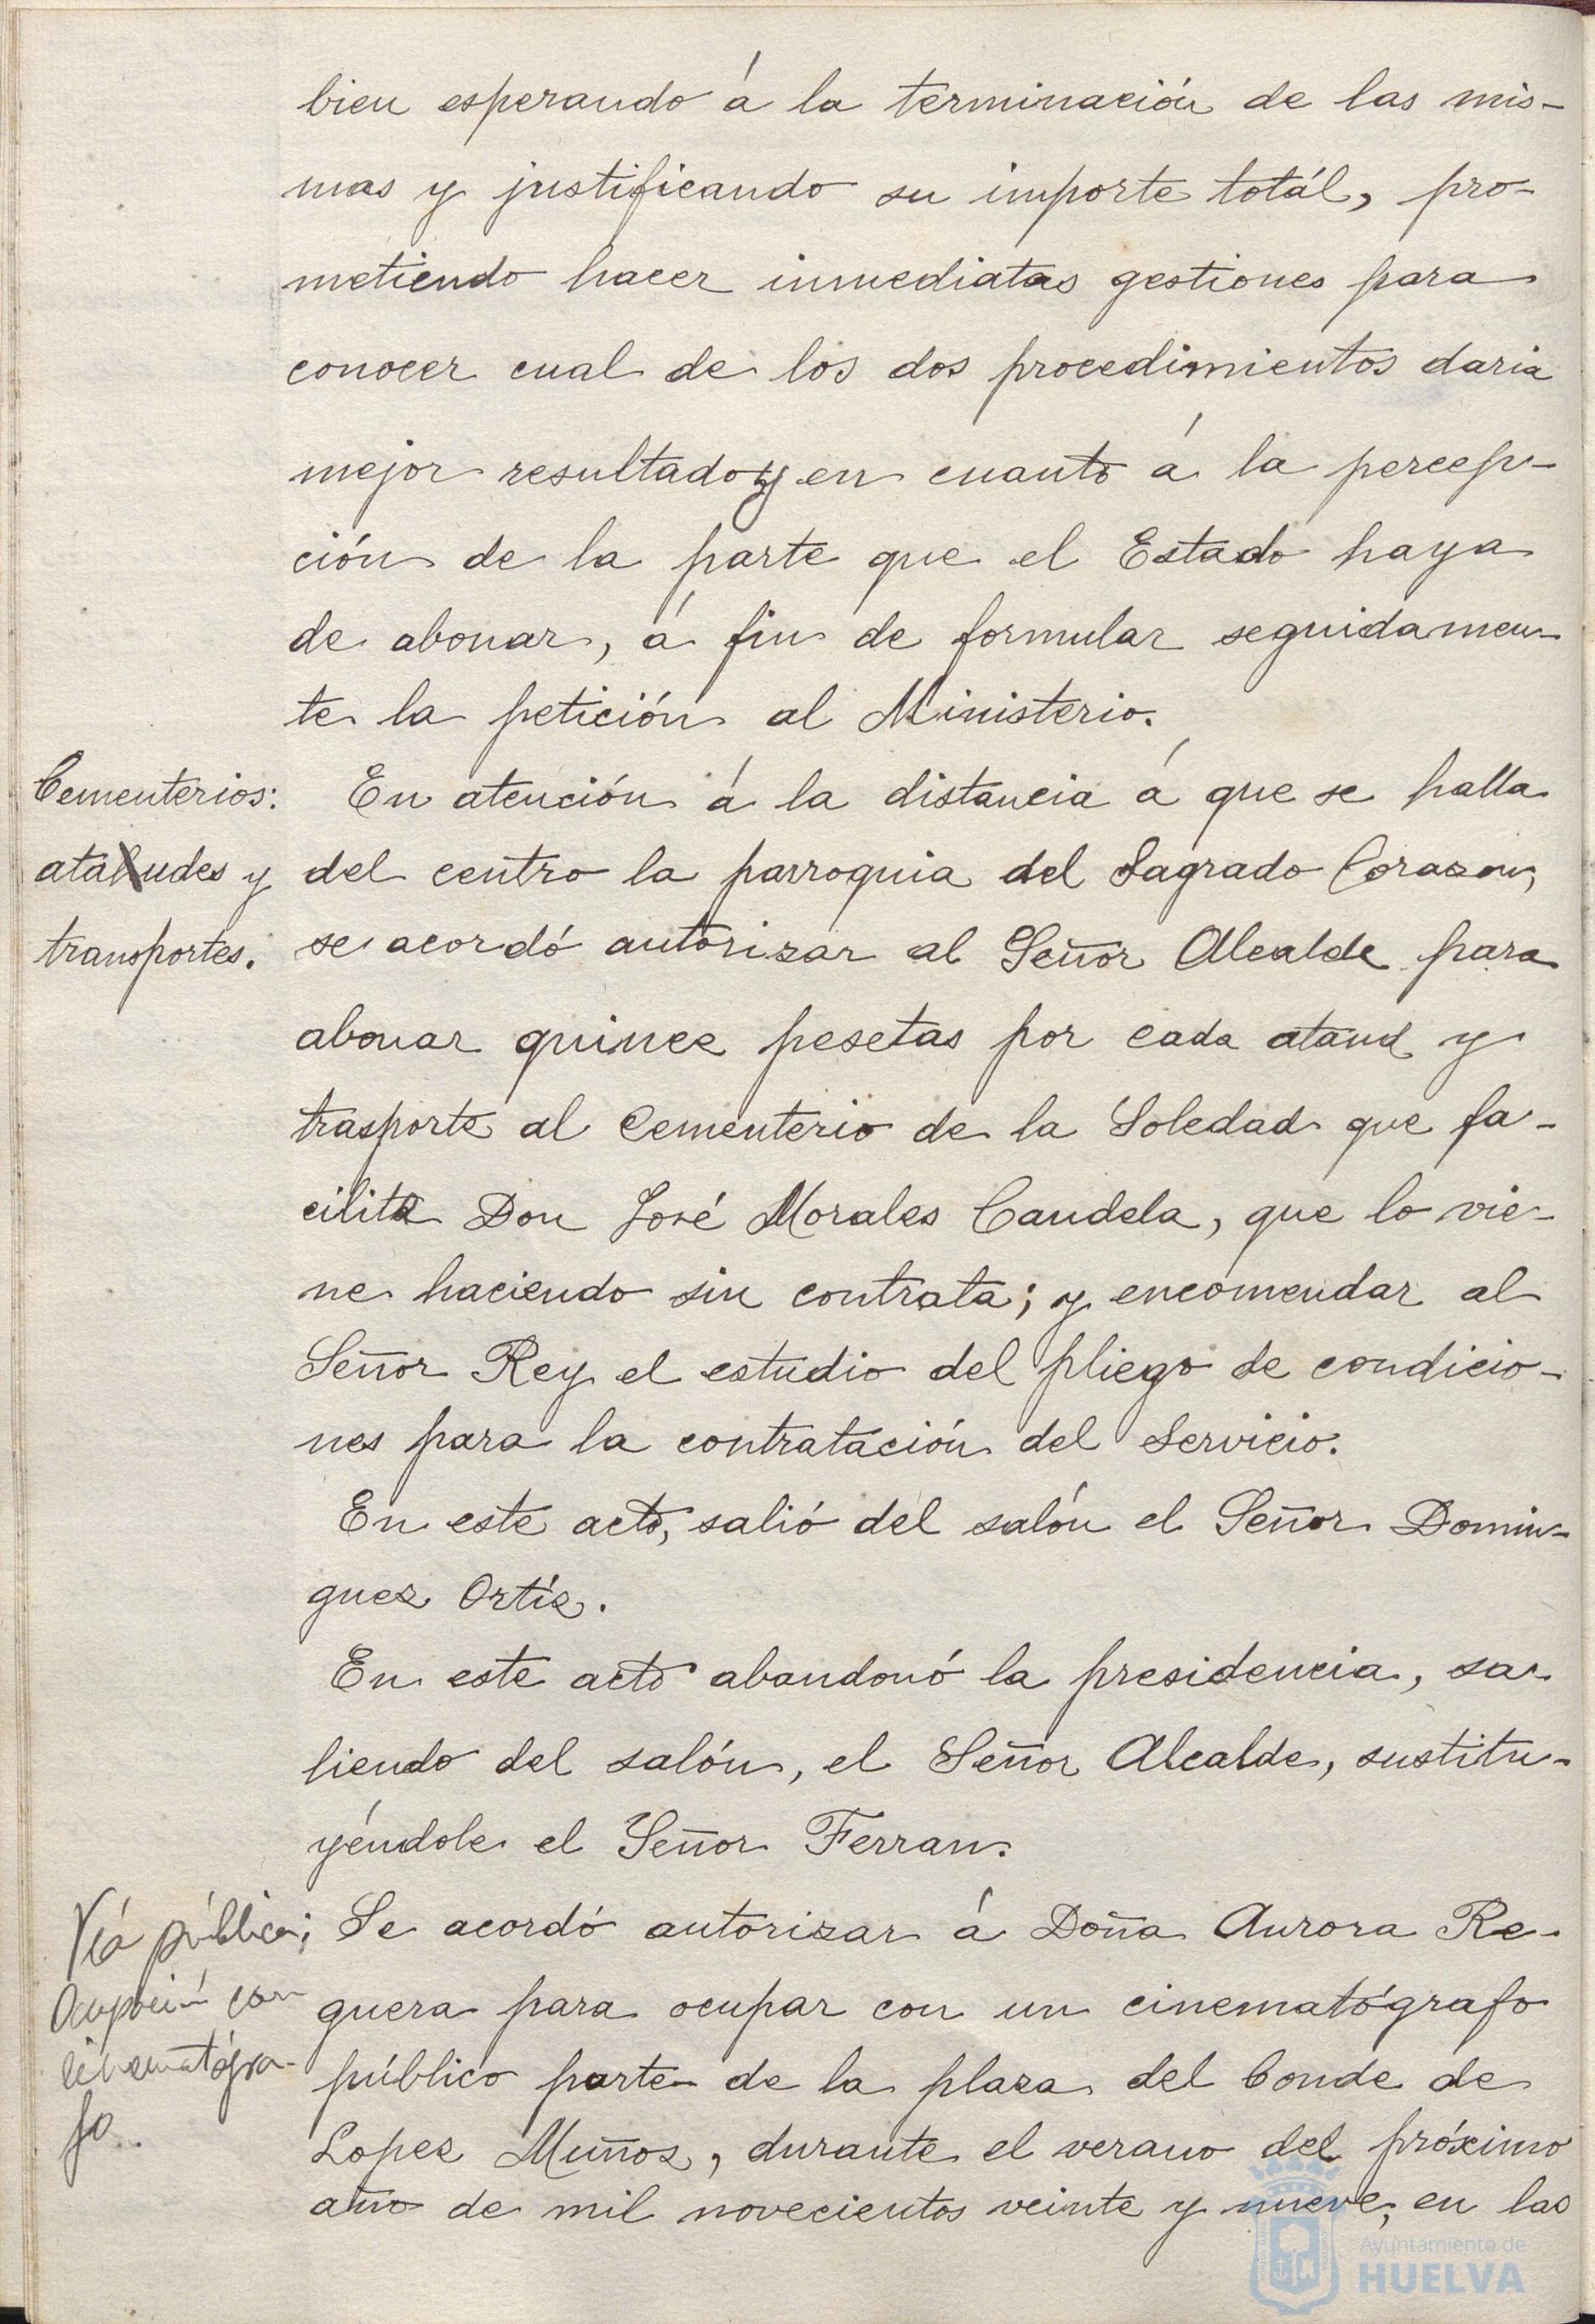 bien esperando á la terminación de las mis-
mas y justificando su importe totál, pro-
metiendo hacer inmediatas gestiones para
conocer cual de los dos procedimientos daria
mejor resultado y en cuanto á la percep-
ción de la parte que el Estado haya
de abonar, á fin de formular seguidamen-
te la petición al Ministerio.
Cementerios:
ataludes y
transportes.
En atención á la distancia á que se halla
del centro la parroquia del Sagrado Corazon,
se acordó autorizar al Señor Alcalde para
abonar quince pesetas por cada ataud y
trasporte al Cementerio de la Soledad que fa-
cilita Don José Morales Candela, que lo vie-
ne haciendo sin contrata; y encomendar al
Señor Rey el estudio del pliego de condicio-
nes para la contratación del servicio.
En este acto, salió del salón el Señor Domin-
guez Ortíz.
En este acto abandonó la presidencia, sa-
liendo del salón, el Señor Alcalde, sustitu-
yéndole el Señor Ferran.
Vía pública;
Ocupación con
cinematógra-
fo.
Se acordó autorizar á Doña Aurora Re-
guera para ocupar con un cinematógrafo
público parte de la plaza del Conde de
Lopez Muñoz, durante el verano del próximo
año de mil novecientos veinte y nueve, en las
Ayuntamiento de
HUELVA